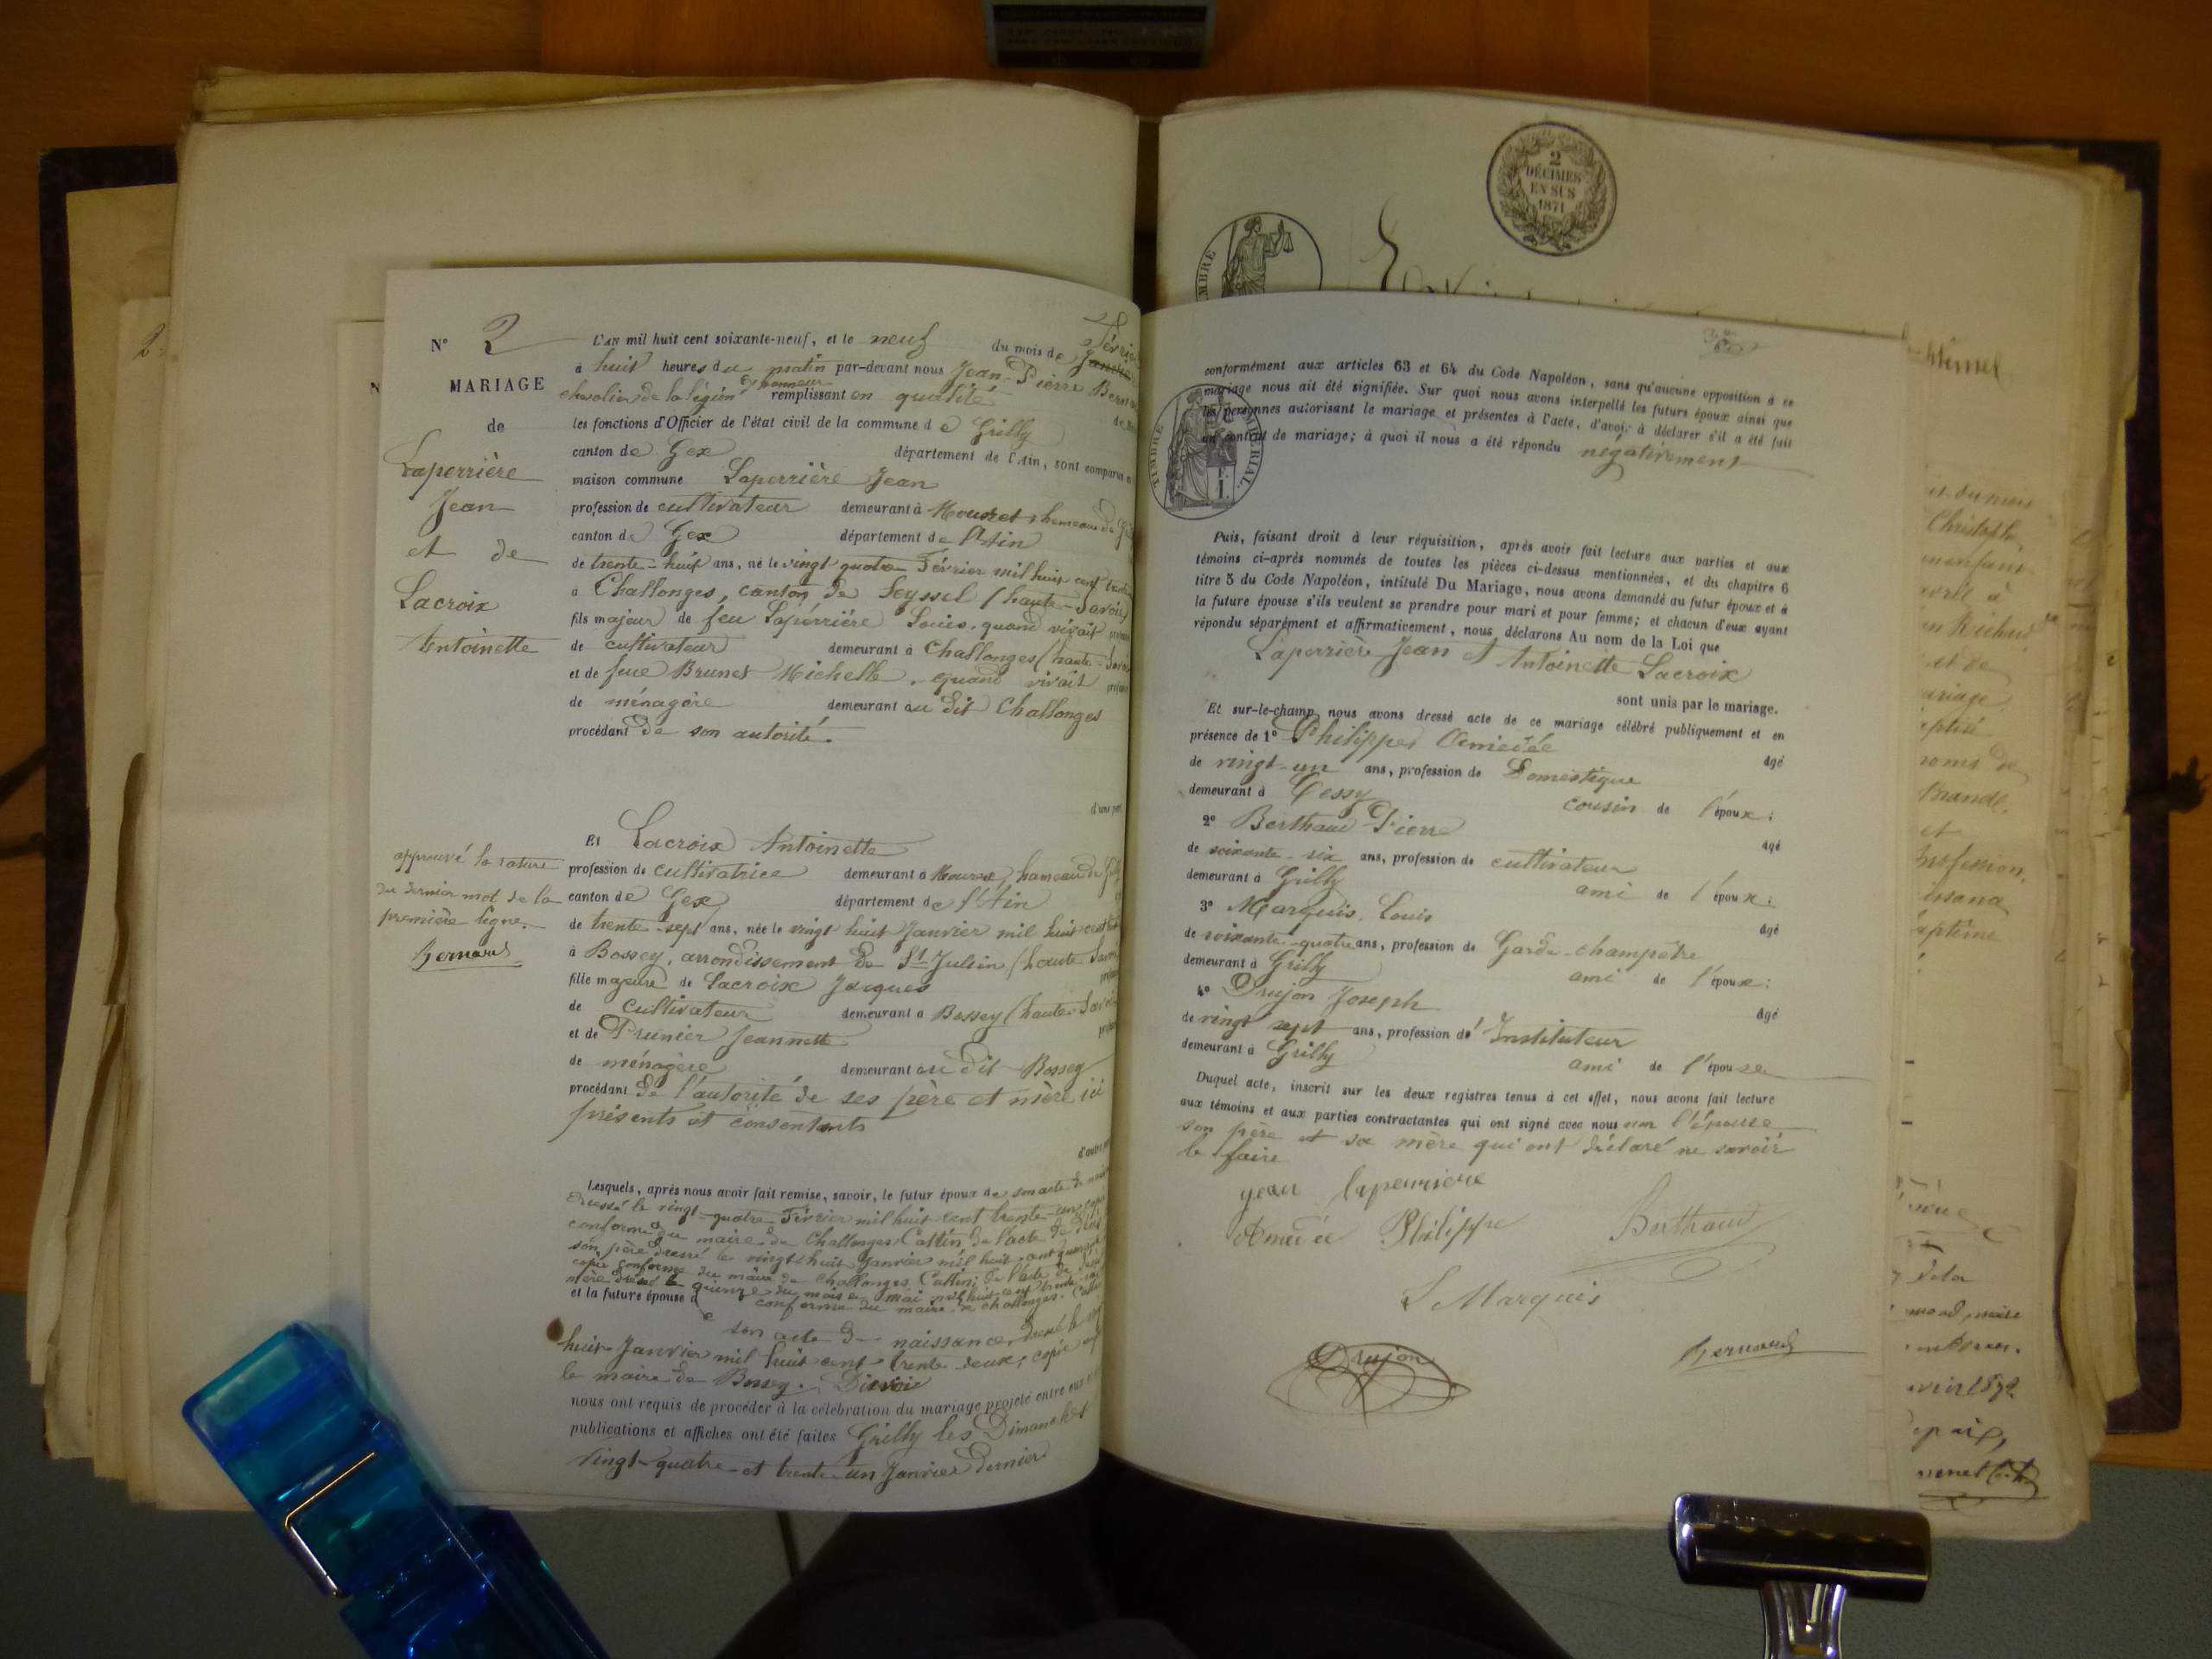 N° 2
MARIAGE
de
Laperrière
Jean
et de
Lacroix
Antoinette
approuvé la rature
du dernier mot de la
première ligne.
Bernard
L'An mil huit cent soixante-neuf, et le neuf du mois de Janvier Février
à huit heures du matin par-devant nous Jean-Pierre
chevalier de la légion d'honneur remplissant en qualité
les fonctions d'Officier de l'état civil de la commune de Grilly
canton de Gex département de l'Ain, sont comparus
maison commune Laperrière Jean
profession de cultivateur demeurant à Mourex, hameau de
canton de Gex département de l'Ain
de trente-huit ans, né le vingt quatre Février mil huit cent
à Challonges, canton de Seyssel (haute-Savoie)
fils majeur de feu Laperrière Louis, quand vivait
de cultivateur demeurant à Challonges (haute-
et de feue Brunet Michelle, quand vivait
de ménagère demeurant au dit Challonges
procédant de son autorité.
d'une part
Et Lacroix Antoinette
profession de cultivatrice demeurant à Mourex, hameau de
canton de Gex département de l'Ain
de trente-sept ans, née le vingt huit Janvier mil huit cent
à Bossey, arrondissement de St Julien (haute
fille majeure de Lacroix Jacques
de cultivateur demeurant à Bossey (haute-
et de Prunier Jeannette
de ménagère demeurant au dit Bossey
procédant de l'autorité de ses père et mère ici
présents et consentants
Lesquels, après nous avoir fait remise, savoir, le futur époux de son acte de
dressé le vingt-quatre Février mil huit cent trente-un, copie
conforme du maire de Challonges Cattin, de l'acte de
son père dressé le vingt huit Janvier mil huit cent
copie conforme du maire de Challonges Cattin; de l'acte de
mère dressé le quinze du mois de mai mil huit cent trente
et la future épouse de conforme du maire de Challonges.
son acte de naissance, dressé le
huit Janvier mil huit cent trente-deux, copie
le maire de Bossey.
nous ont requis de procéder à la célébration du mariage projeté entre eux
publications et affiches ont été faites Grilly les Dimanches
vingt-quatre et trente-un Janvier dernier
2
DÉCIMES
EN SUS
1871
conformément aux articles 63 et 64 du Code Napoléon, sans qu'aucune opposition à ce
mariage nous ait été signifiée. Sur quoi nous avons interpellé les futurs époux ainsi que
les personnes autorisant le mariage et présentes à l'acte, d'avoir à déclarer s'il a été fait
un contrat de mariage; à quoi il nous a été répondu négativement
TIMBRE IMPÉRIAL
Puis, faisant droit à leur réquisition, après avoir fait lecture aux parties et aux
témoins ci-après nommés de toutes les pièces ci-dessus mentionnées, et du chapitre 6
titre 5 du Code Napoléon, intitulé Du Mariage, nous avons demandé au futur époux et à
la future épouse s'ils veulent se prendre pour mari et pour femme; et chacun d'eux ayant
répondu séparément et affirmativement, nous déclarons Au nom de la Loi que
Laperrière Jean et Antoinette Lacroix
sont unis par le mariage.
Et sur-le-champ nous avons dressé acte de ce mariage célébré publiquement et en
présence de 1° Philippe Amédée âgé
de vingt-un ans, profession de Domestique
demeurant à Cessy cousin de l'époux;
2° Berthaud Pierre âgé
de soixante-six ans, profession de cultivateur
demeurant à Grilly ami de l'époux;
3° Marquis, Louis âgé
de soixante-quatre ans, profession de Garde-champêtre
demeurant à Grilly ami de l'époux;
4° Drujon Joseph âgé
de vingt sept ans, profession d'Instituteur
demeurant à Grilly ami de l'épouse
Duquel acte, inscrit sur les deux registres tenus à cet effet, nous avons fait lecture
aux témoins et aux parties contractantes qui ont signé avec nous non l'épouse
son père et sa mère qui ont déclaré ne savoir
le faire
jean laperriere
Amédée Philippe Berthaud
L Marquis
Drujon Bernard